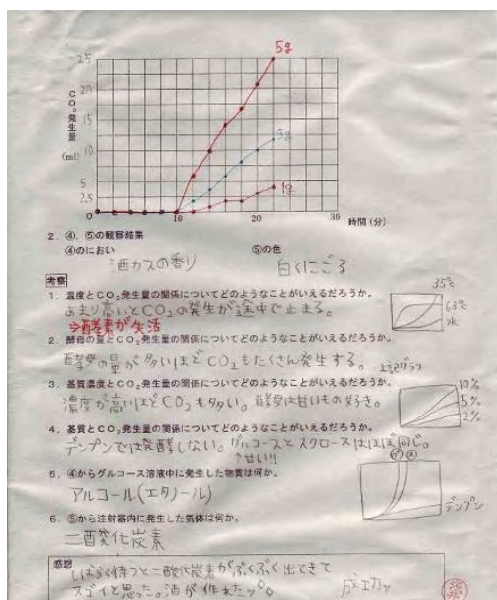 25
20
15
10
5
2.5
0
CO₂発生量
(ml)
10
20
30
時間(分)
5g
3g
1g
2. ④, ⑤の観察結果
④のにおい ⑤の色
酒カスの香り 白くにごる
考察
1. 温度とCO₂発生量の関係についてどのようなことがいえるだろうか。
あまり高いとCO₂の発生が途中で止まる。
⇒酵素が失活
35℃
63℃
水
2. 酵母の量とCO₂発生量の関係についてどのようなことがいえるだろうか。
酵母の量が多いほどCO₂もたくさん発生する。 上記グラフ
3. 基質濃度とCO₂発生量の関係についてどのようなことがいえるだろうか。
濃度が高いほどCO₂も多い。酵母は甘いもの好き。
10%
5%
2%
4. 基質とCO₂発生量の関係についてどのようなことがいえるだろうか。
デンプンでは発酵しない。グルコースとスクロースはほぼ同じ。
↑甘い!!
グ ス
デンプン
5. ④からグルコース溶液中に発生した物質は何か。
アルコール(エタノール)
6. ⑤から注射器内に発生した気体は何か。
二酸化炭素
感想
しばらく待つと二酸化炭素がぶくぶく出てきて
スゴイと思った。酒が作れたッ。
成功ッ